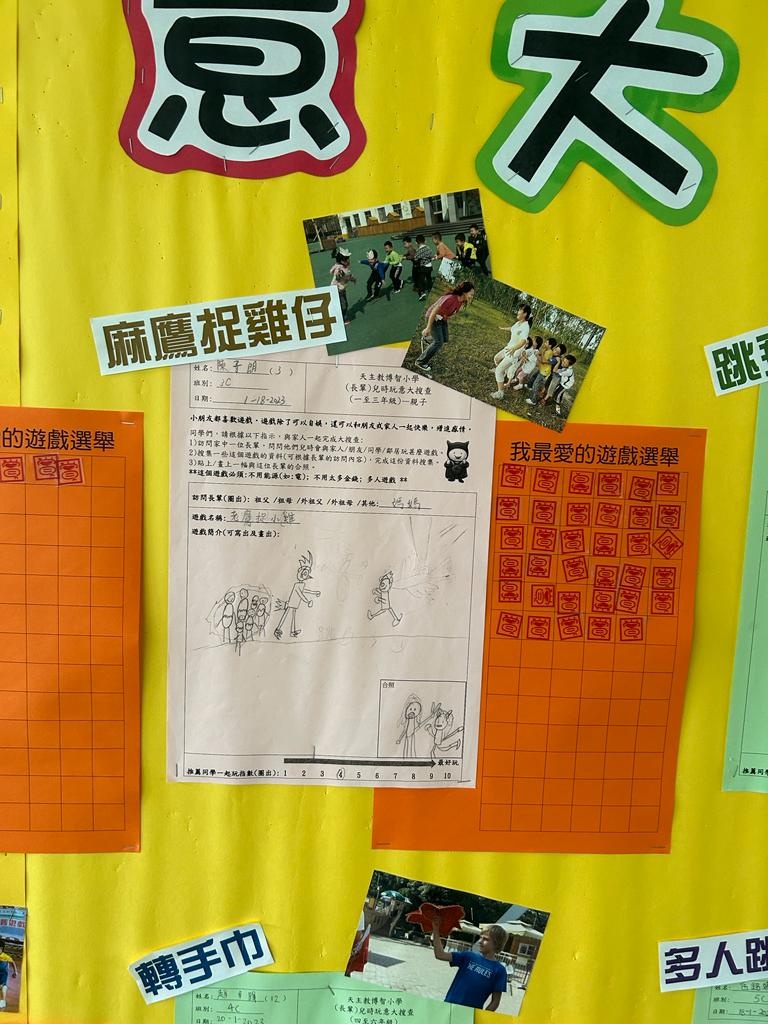 意 大
麻鷹捉雞仔
跳
姓名: (3)
班別: 3C
日期: 1-18-2023
天主教博智小學
(長輩)兒時玩意大搜查
(一至三年級)—親子
小朋友都喜歡遊戲,遊戲除了可以自娛,還可以和朋友或家人一起快樂,增進感情。
同學們,請根據以下指示,與家人一起完成大搜查:
1)訪問家中一位長輩,問問他們兒時會與家人/朋友/同學/鄰居玩甚麼遊戲。
2)搜集一些這個遊戲的資料(可根據長輩的訪問內容),完成這份資料搜集。
3)貼上/畫上一幅與這位長輩的合照。
**這個遊戲必須:不用能源(如:電); 不用太多金錢; 多人遊戲 **
訪問長輩(圈出): 祖父 /祖母 /外祖父 /外祖母 /其他: 媽媽
遊戲名稱: 老鷹捉小雞
遊戲簡介(可寫出及畫出):
合照
最好玩
推薦同學一起玩指數(圈出): 1 2 3 4 5 6 7 8 9 10
的遊戲選舉
我最愛的遊戲選舉
轉手巾
多人跳
姓名: (12)
班別: 4C
日期: 20-1-2023
天主教博智小學
(長輩)兒時玩意大搜查
(四至六年級)
姓名:
班別: 5C
日期: